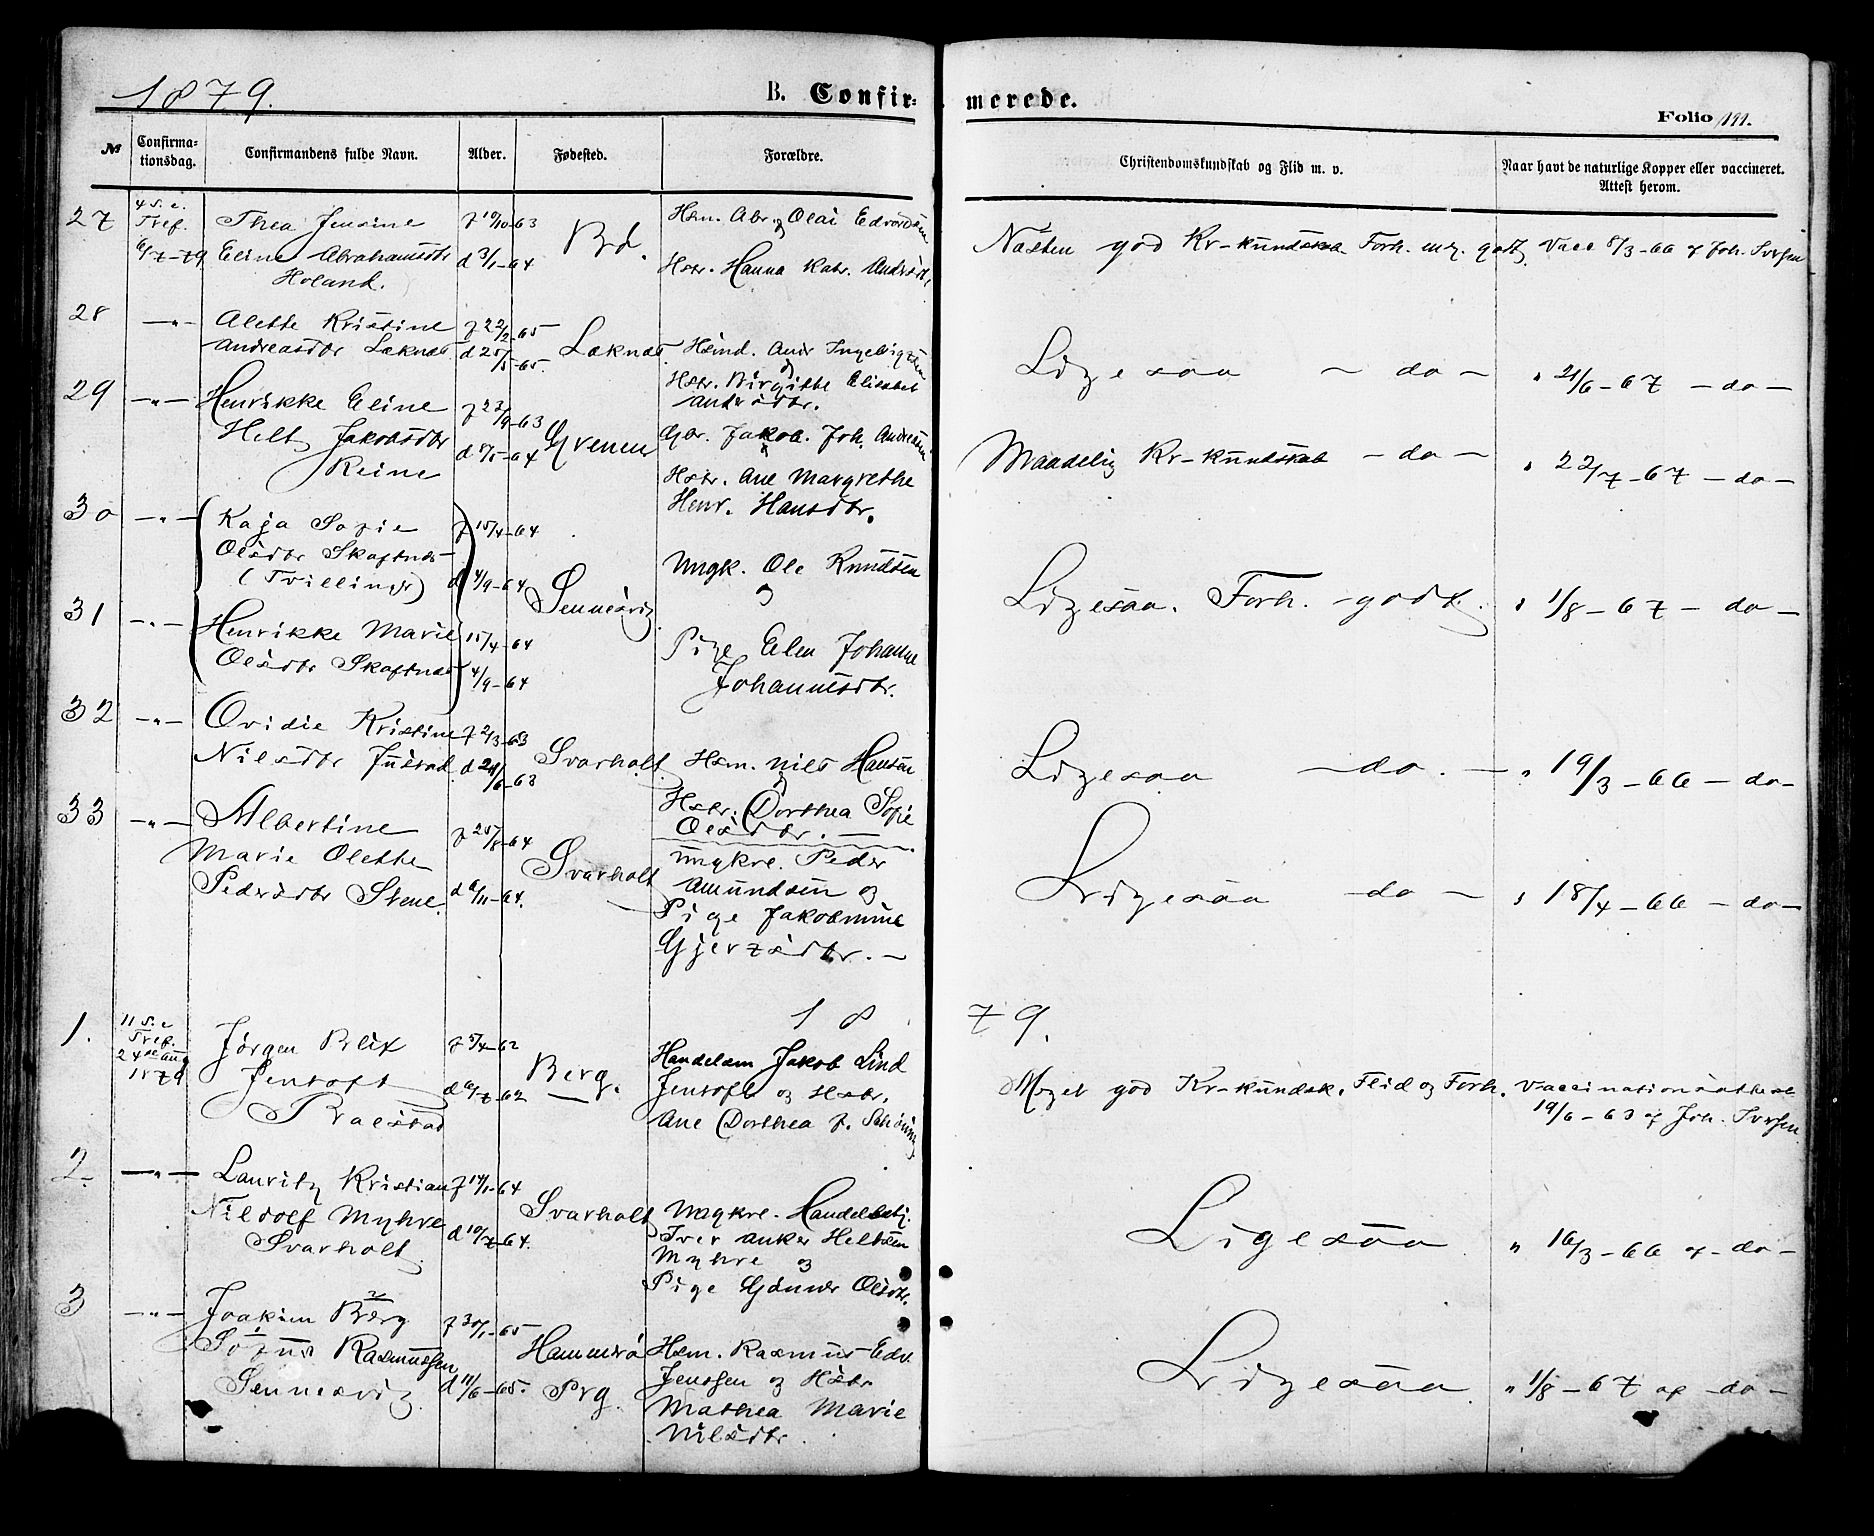 1879.
B. Confir-
merede.
Folio 199.
№
Confirma-
tionsdag.
Confirmandens fulde Navn.
Alder.
Fødested.
Forældre.
Christendomskundskab og Flid m. v.
Naar havt de naturlige Kopper eller vaccineret.
Attest herom.
27 4 S. e. Thea Jensine f 10/10-63 Bø. Hsm. Abr. Olai Edvardsen
Tref. Eline Abrahamsdtr d 3/1-64 og
6/7-79 Holand. Hstr. Hanna Katr. Andrsdtr.
Næsten god Kr-kundskab Forh. meg. godt. Vacc 8/3-66 af Joh. Iversen
28 —„— Alette Kristine f 22/2-65 Leknæs Hsmd. Andr Ingebrigtsen
Andreasdtr Leknæs. d 25/5-65. og
Hstr. Birgitte Elisabet
Andrsdtr.
Ligesaa — do — „ 21/6-67 — do —
29 —„— Henrikke Eline f 22/9-63 Grenen Gbr. Jakob. Joh. Andreasen
Helt Jakobsdtr d 5/5-64 og
Reine Hstr. Ane Margrethe
Henr. Hansdtr.
Maadelig Kr-kundskab — do — „ 22/7-67 — do —
30 —„— Kaja Sofie f 15/4-64
Olsdtr Skaftnæs
(Tvillinger) d 4/9-64 Sennesvig Ungk. Ole Knudsen
og
Ligesaa. Forh. godt. „ 1/8-67 — do —
31 —„— Henrikke Marie 15/4-64 Pige Elen Johanne
Olsdtr Skaftnæs 4/9-64 Johannesdtr.
32 —„— Ovidie Kristine f 2/3-63 Svarholt Hsm. Nils Hansen
Nilsdtr Justad d 24/6-63 og
Hstr. Dorthea Sofie
Olsdtr. —
Ligesaa — do. — „ 19/3-66 — do —
33 —„— Albertine f 25/8-64 Svarholt Ungkre. Peder
Marie Olette Amundsen og
Pedersdtr Stene. d 6/11-64. Pige Jakobmine
Gjertsdtr. —
Ligesaa — do — „ 18/4-66 — do —
18
79.
1. 11 S. e Jørgen Blix f 5/4-62 Berg. Handelsm Jakob Lind
Tref. Jentoft d 6/7-62 — Jentoft og Hstr.
24de Aug Præstad Ane Dorthea f. Schøning
1879
Meget god Kr-kundsk. Flid og Forh. Vaccinationsattest
19/6-63 af Joh. Iversen.
2. —„— Lauritz Kristian f 14/1-64 Svarholt Ungkre. Handelsbetj.
Nildolf Myhre d 10/7-64. Iver Anker Heltzen
Svarholt Myhre og
Pige Gjønner Olsdtr.
Ligesaa „ 16/3-66 af — do —
3 —„— Joakim Berg f 30/1-65 Hammerø Hsm. Rasmus Edv.
Sofus Rasmussen Prg. Jenssen og Hstr
Sennesvig d 11/6-65. Mathea Marie
Nilsdtr.
Ligesaa „ 1/8-67 af — do —